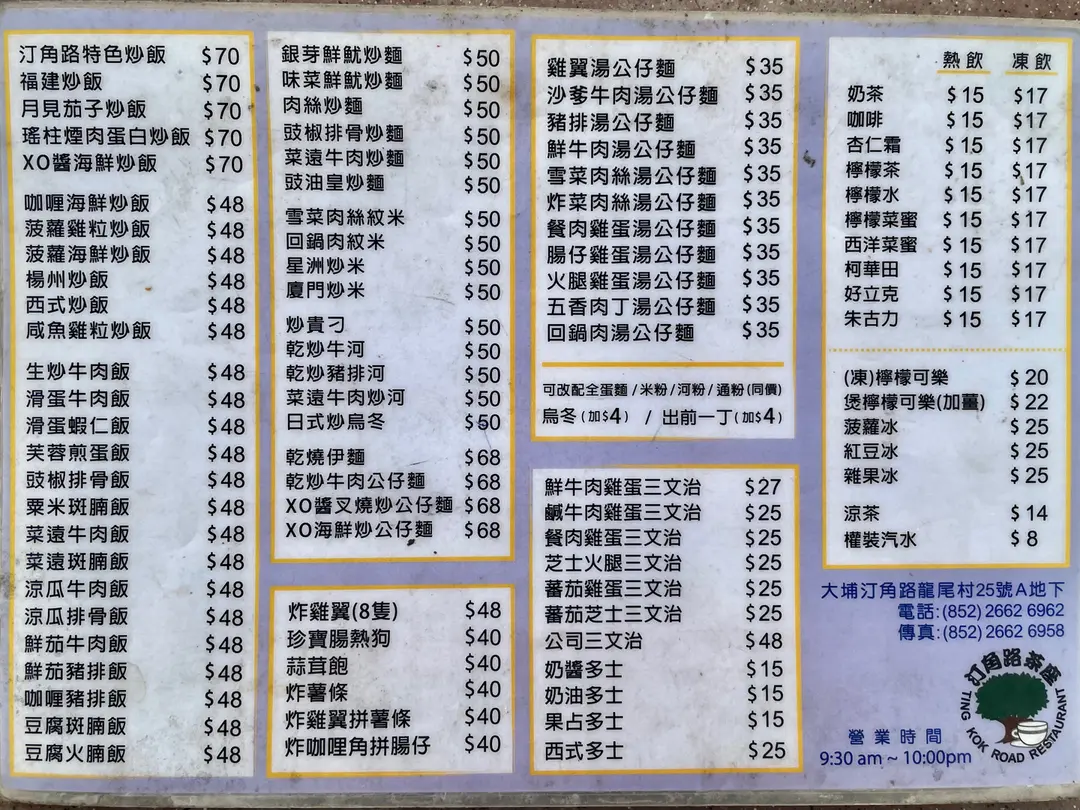 汀角路特色炒飯 $70
福建炒飯 $70
月見茄子炒飯 $70
瑤柱煙肉蛋白炒飯 $70
XO醬海鮮炒飯 $70
咖喱海鮮炒飯 $48
菠蘿雞粒炒飯 $48
菠蘿海鮮炒飯 $48
楊州炒飯 $48
西式炒飯 $48
咸魚雞粒炒飯 $48
生炒牛肉飯 $48
滑蛋牛肉飯 $48
滑蛋蝦仁飯 $48
芙蓉煎蛋飯 $48
豉椒排骨飯 $48
粟米斑腩飯 $48
菜遠牛肉飯 $48
菜遠斑腩飯 $48
涼瓜牛肉飯 $48
涼瓜排骨飯 $48
鮮茄牛肉飯 $48
鮮茄豬排飯 $48
咖喱豬排飯 $48
豆腐斑腩飯 $48
豆腐火腩飯 $48
銀芽鮮魷炒麵 $50
味菜鮮魷炒麵 $50
肉絲炒麵 $50
豉椒排骨炒麵 $50
菜遠牛肉炒麵 $50
豉油皇炒麵 $50
雪菜肉絲紋米 $50
回鍋肉紋米 $50
星洲炒米 $50
廈門炒米 $50
炒貴刁 $50
乾炒牛河 $50
乾炒豬排河 $50
菜遠牛肉炒河 $50
日式炒烏冬 $50
乾燒伊麵 $68
乾炒牛肉公仔麵 $68
XO醬叉燒炒公仔麵 $68
XO海鮮炒公仔麵 $68
炸雞翼(8隻) $48
珍寶腸熱狗 $40
蒜茸飽 $40
炸薯條 $40
炸雞翼拼薯條 $40
炸咖哩角拼腸仔 $40
雞翼湯公仔麵 $35
沙爹牛肉湯公仔麵 $35
豬排湯公仔麵 $35
鮮牛肉湯公仔麵 $35
雪菜肉絲湯公仔麵 $35
炸菜肉絲湯公仔麵 $35
餐肉雞蛋湯公仔麵 $35
腸仔雞蛋湯公仔麵 $35
火腿雞蛋湯公仔麵 $35
五香肉丁湯公仔麵 $35
回鍋肉湯公仔麵 $35
可改配全蛋麵/米粉/河粉/通粉(同價)
烏冬(加$4) / 出前一丁(加$4)
鮮牛肉雞蛋三文治 $27
鹹牛肉雞蛋三文治 $25
餐肉雞蛋三文治 $25
芝士火腿三文治 $25
蕃茄雞蛋三文治 $25
蕃茄芝士三文治 $25
公司三文治 $48
奶醬多士 $15
奶油多士 $15
果占多士 $15
西式多士 $25
熱飲 凍飲
奶茶 $15 $17
咖啡 $15 $17
杏仁霜 $15 $17
檸檬茶 $15 $17
檸檬水 $15 $17
檸檬菜蜜 $15 $17
西洋菜蜜 $15 $17
柯華田 $15 $17
好立克 $15 $17
朱古力 $15 $17
(凍)檸檬可樂 $20
煲檸檬可樂(加薑) $22
菠蘿冰 $25
紅豆冰 $25
雜果冰 $25
涼茶 $14
權裝汽水 $8
大埔汀角路龍尾村25號A地下
電話:(852) 2662 6962
傳真:(852) 2662 6958
汀角路茶座
TING KOK ROAD RESTAURANT
營業時間
9:30 am ~ 10:00pm